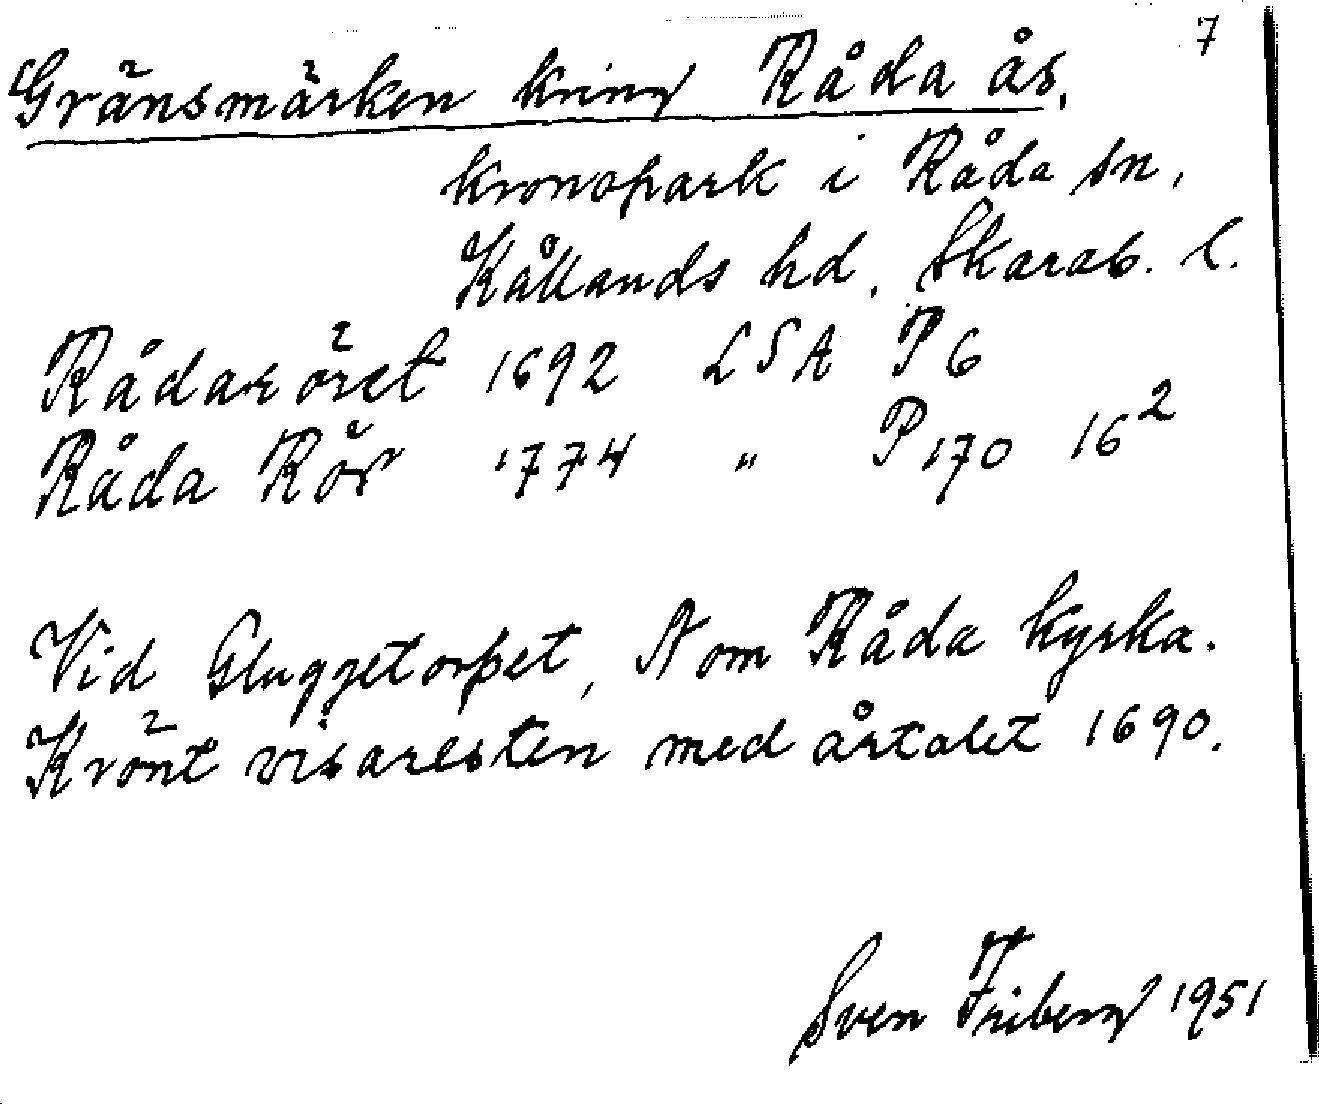 7
Gränsmärken kring Råda ås,
kronopark i Råda sn,
Kållands hd, Skarab. l.
Rådaröret 1692 LSA P 6
Råda Rör 1774 " P 170 16²
Vid Gluggetorpet, N om Råda kyrka.
Krönt visaresten med årtalet 1690.
Sven Friberg 1951